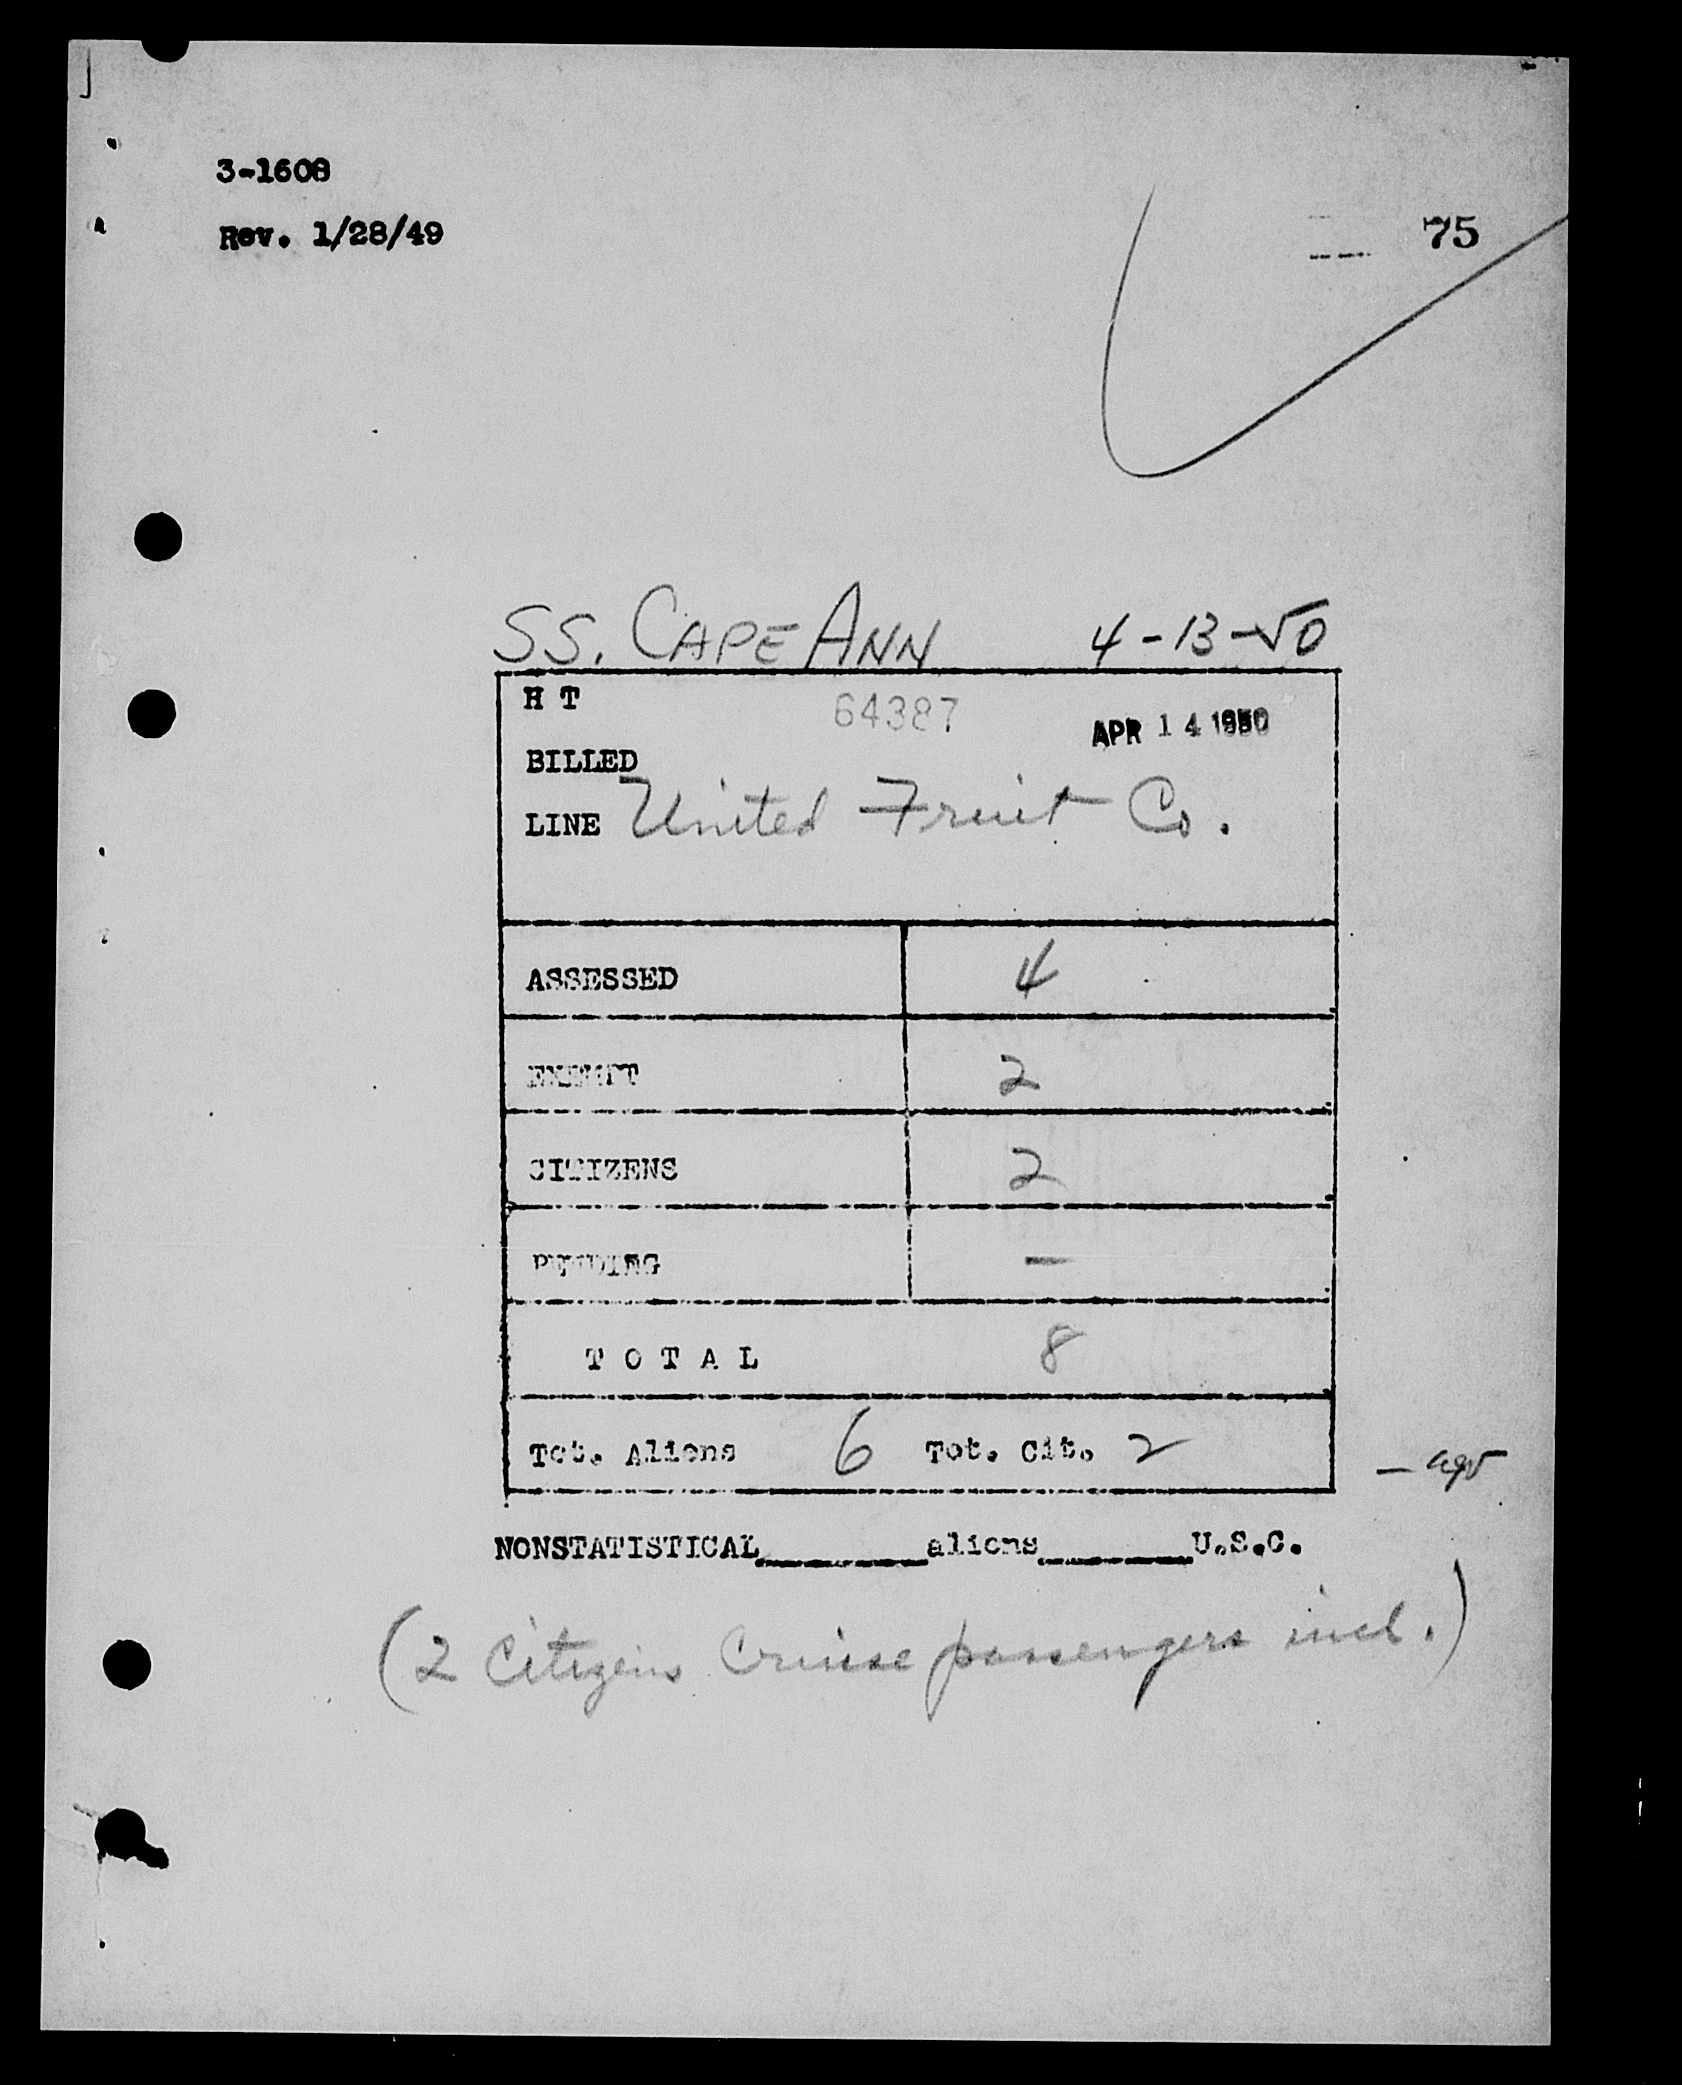 3-1608
Rev. 1/28/49
75
SS. CAPE ANN 4-13-50
H T 64387 APR 14 1950
BILLED
LINE United Fruit Co.
ASSESSED 4
EXEMPT 2
CITIZENS 2
PENDING –
TOTAL 8
Tot. Aliens 6 Tot. Cit. 2
NONSTATISTICAL________aliens________U.S.C.
(2 Citizens Cruise passengers incl.)